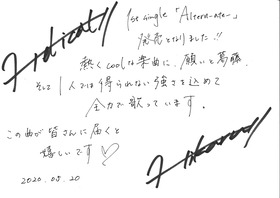 1st single「Altern-ate-」
発売となりました!!
熱くcoolな楽曲に、願いと葛藤、
そして1人では得られない強さを込めて
全力で歌っています。
この曲が皆さんに届くと
嬉しいです♡
2020.05.20